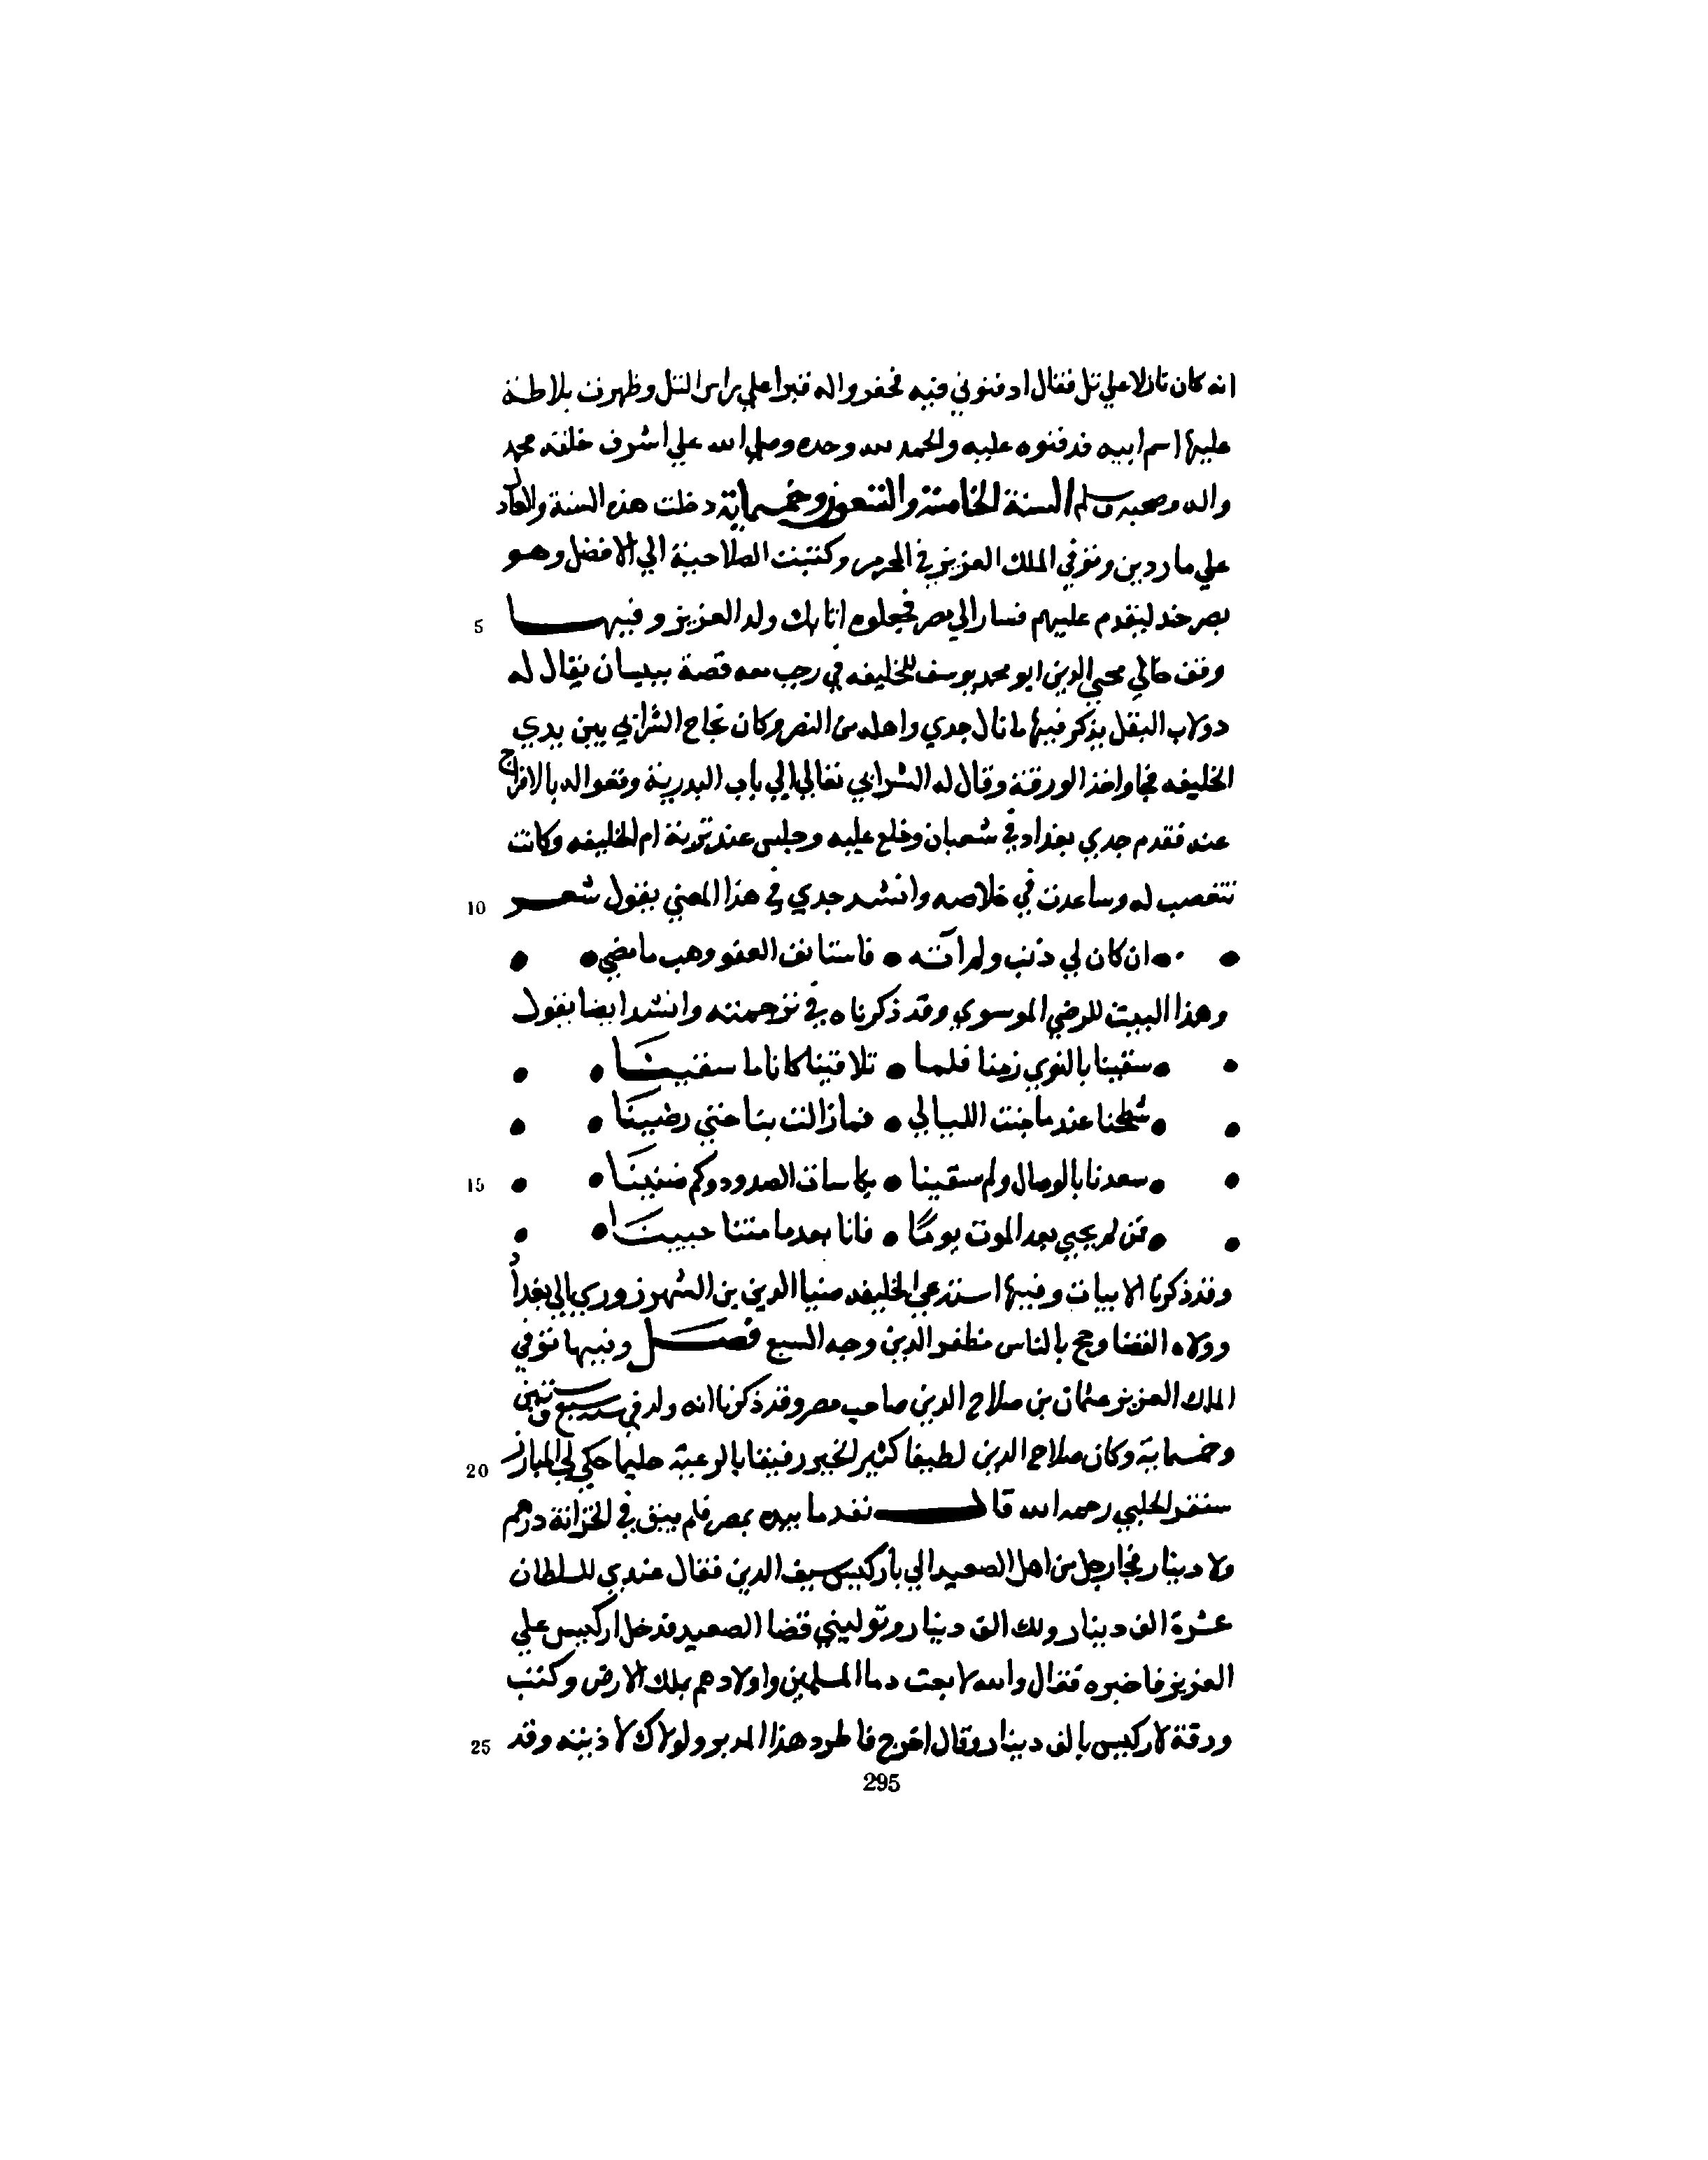 انه كان نازلا علي تل فقال ادفنوني فيه فحفروا له قبرا علي راس التل وظهرت بلاطة
عليها اسم ابيه فدفنوه عليه والحمد لله وحده وصلي الله علي اشرف خلقه محمد
واله وصحبه وسلم السنة الخامسة والتسعون وخمسماية دخلت هذه السنة والعادل
علي ماردين وتوفي الملك العزيز في المحرم وكتبت الصلاحية الي الافضل وهو
بصرخد ليقدم عليهم فسار الي مصر فجعلوه اتابك ولد العزيز وفيها 5
وقف خالي محيي الدين ابو محمد يوسف للخليفه في رجب معه قصة ببيسان يقال له
دولاب البقل يذكر فيها ما نال جدي واهله من الضر وكان نجاح الشرابي بين يدي
الخليفه فجا واخذ الورقة وقال له الشرابي تعالي الي باب البدرية وقعوا له بالافراج
عنه فقدم جدي بغداد في شعبان وخلع عليه وجلس عند تربة ام الخليفه وكانت
تتعصب له وساعدت في خلاصه وانشد جدي في هذا المعني يقول شعر 10
ان كان لي ذنب ولم آته • فاستانف العفو وهب ما مضي
وهذا البيت للرضي الموسوي وقد ذكرناه في ترجمته وانشد ايضا يقول
سقينا بالنوي زمنا فلما • تلاقينا كانا ما سقينا
سخطنا عند ما جنت الليالي • فما زالت بنا حتي رضينا
سعدنا بالوصال ولم سقينا • بكاسات الصدود وكم ضنينا 15
فمن لم يحيي بعد الموت يوما • فانا بعد ما متنا حيينا
وقد ذكرنا الابيات وفيها استدعي الخليفه ضيا الدين بن الشهرزوري الي بغداد
وولاه القضا وحج بالناس مظفر الدين وجه السبع فصل وفيها توفي
الملك العزيز عثمان بن صلاح الدين صاحب مصر وقد ذكرنا انه ولد في سنة سبع وستين
وخمسماية وكان صلاح الدين لطيفا كثير الخير رفيقا بالرعية حليما حكي لي المبارز 20
سنقر الحلبي رحمه الله قال نفد ما بيده بمصر فلم يبق في الخزانة درهم
ولا دينار فجا رجل من اهل الصعيد الي يازكيس سيف الدين فقال عندي للسلطان
عشرة الف دينار ولك الف دينار وتوليني قضا الصعيد فدخل اركيس علي
العزيز فاخبره فقال والله لا بعت دما المسلمين واولادهم بملك الارض وكتب
ورقة لاركيس بالف دينار وقال اخرج فاطرد هذا المدبر ولولاك لاذيته وقد 25
295